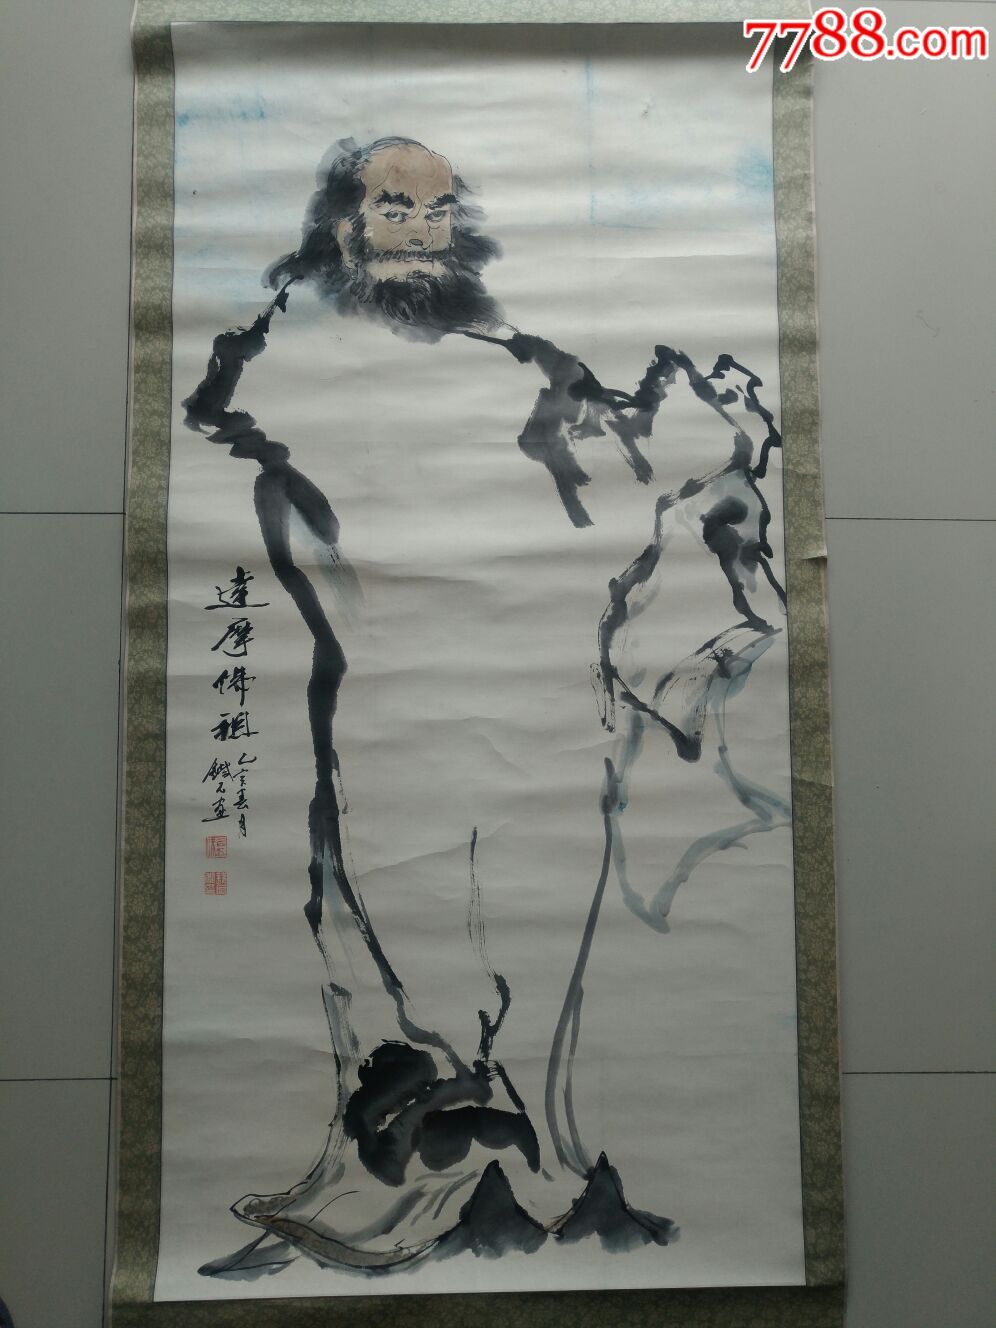 7788.com
達摩佛祖
乙亥春月
鐵石畫